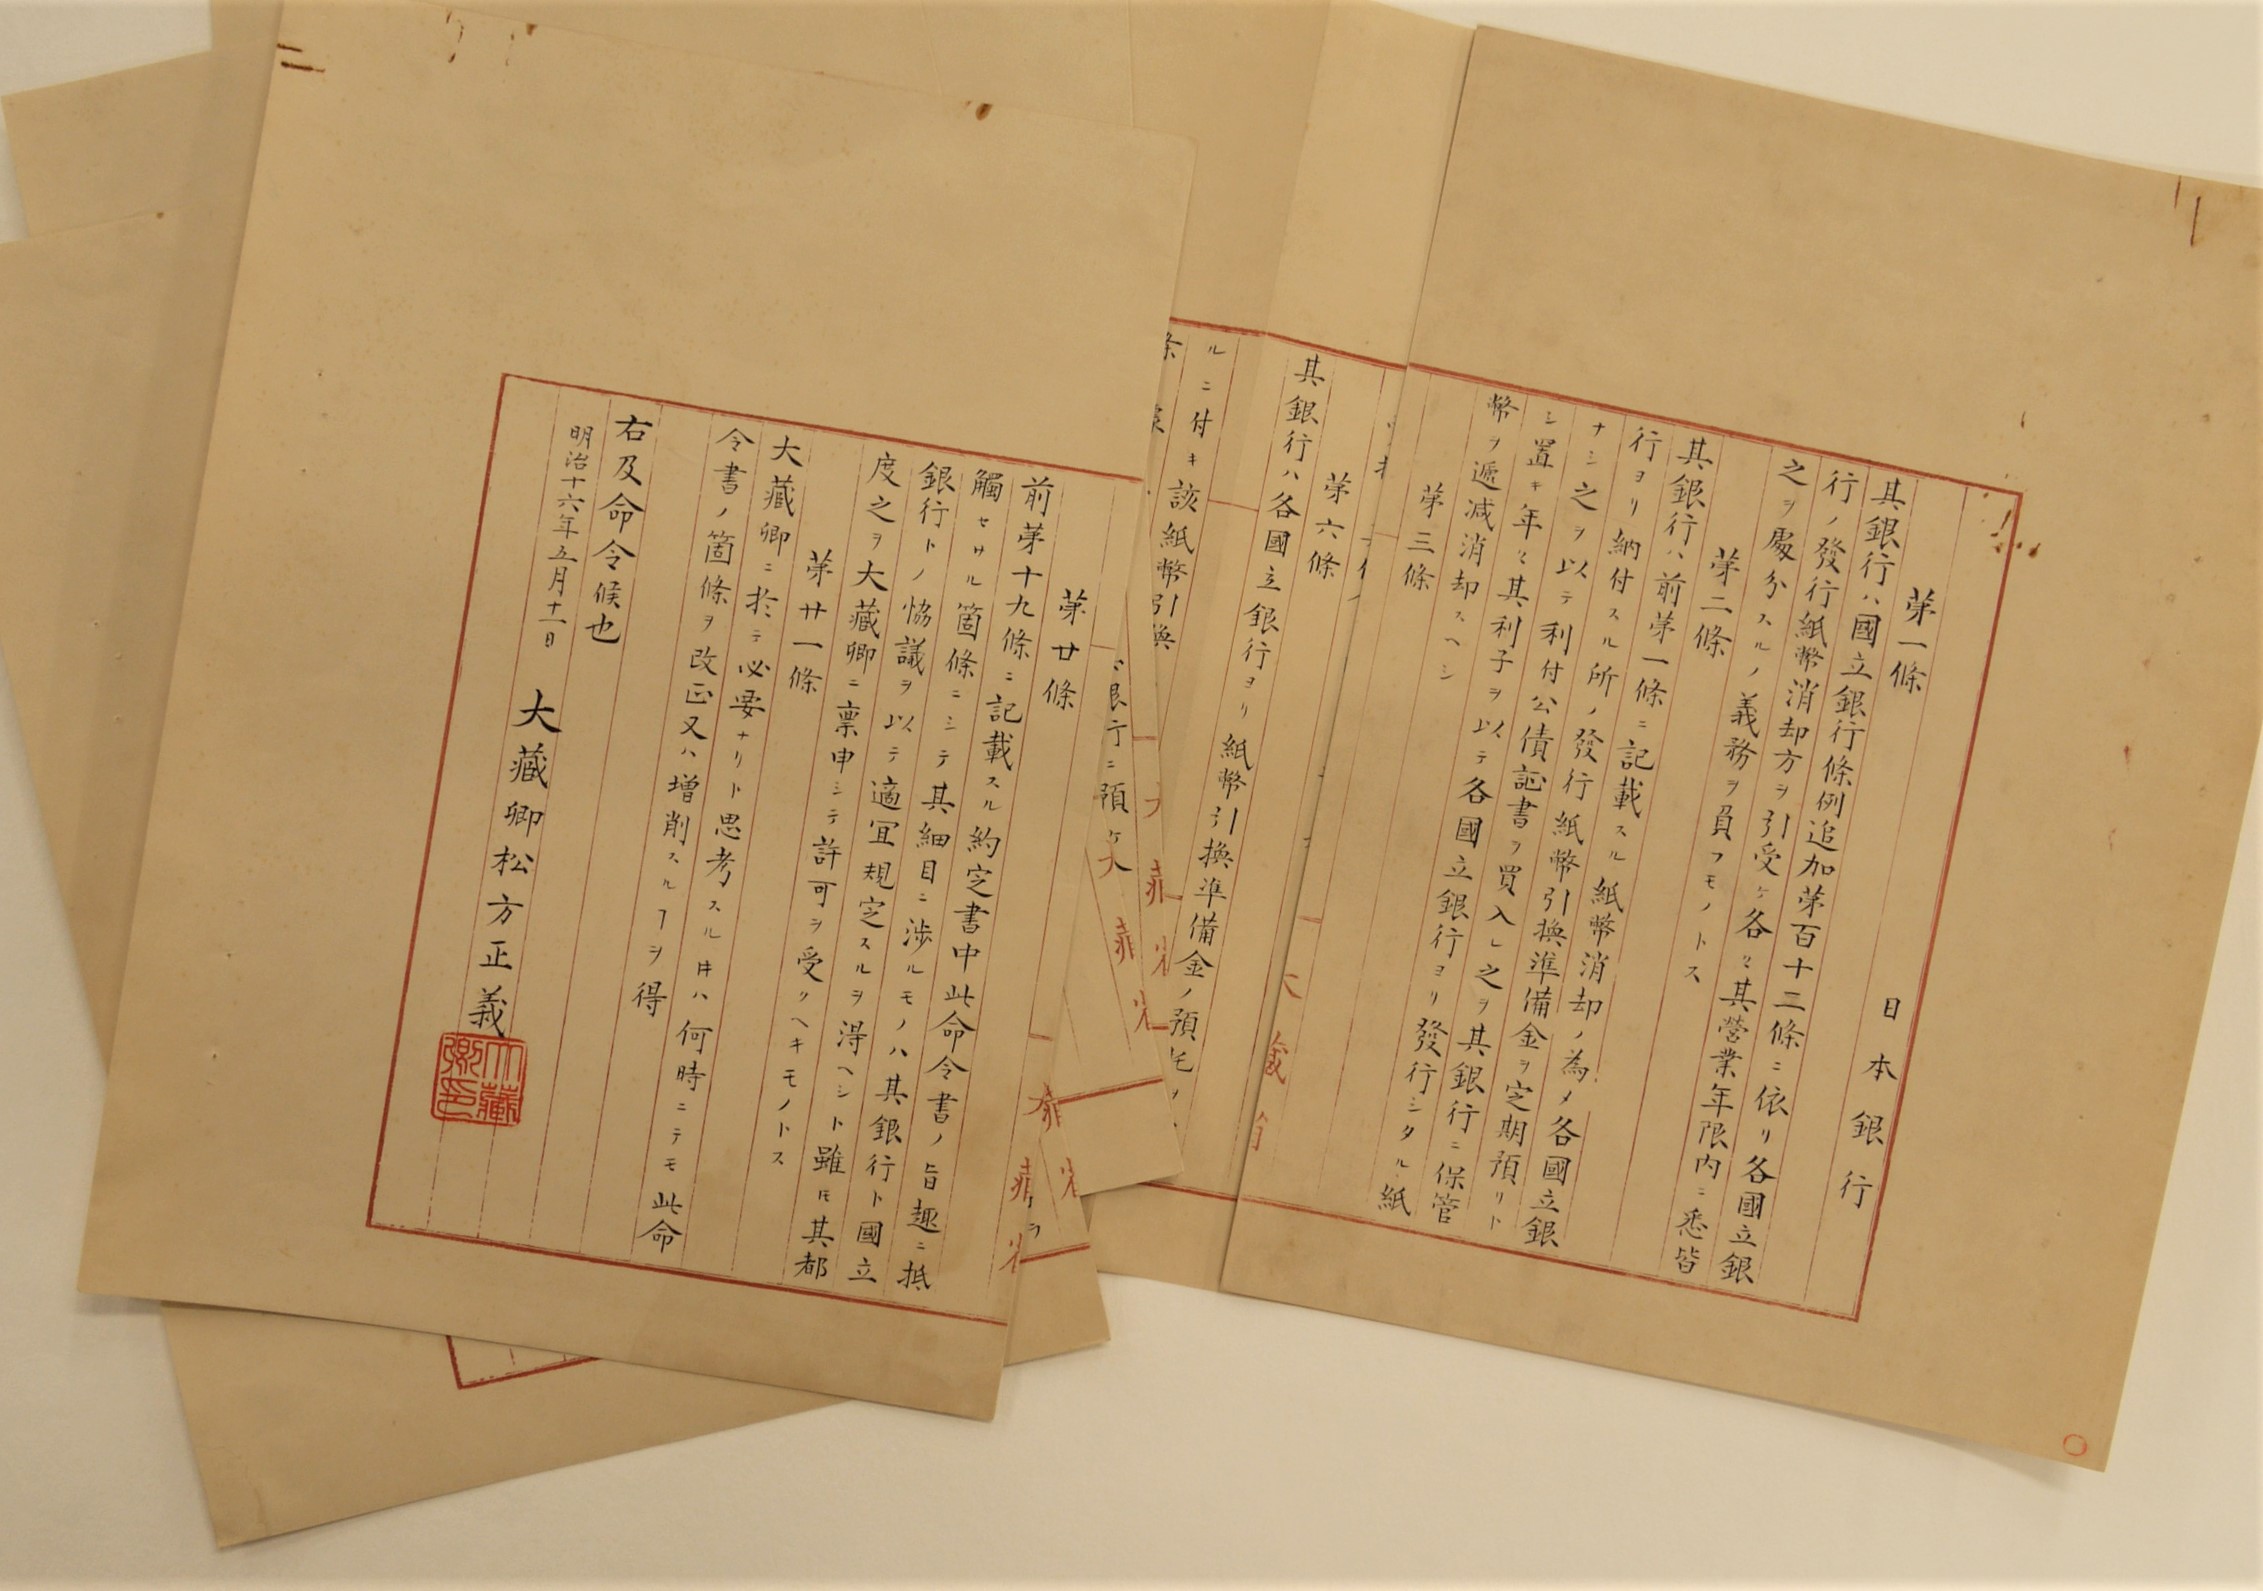 日本銀行
第一條
其銀行ハ國立銀行條例追加第百十二條ニ依リ各國立銀
行ノ發行紙幣消却方ヲ引受ケ各々其營業年限内ニ悉皆
之ヲ處分スルノ義務ヲ負フモノトス
第二條
其銀行ハ前第一條ニ記載スル紙幣消却ノ為メ各國立銀
行ヨリ納付スル所ノ發行紙幣引換準備金ヲ定期預リト
ナシ之ヲ以テ利付公債証書ヲ買入レ之ヲ其銀行ニ保管
シ置キ年々其利子ヲ以テ各國立銀行ヨリ發行シタル紙
幣ヲ遞減消却スヘシ
第三條
第六條
其銀行ハ各國立銀行ヨリ紙幣引換準備金ノ預托ヲ
ルニ付キ該紙幣引換
大藏省
第廿條
前第十九條ニ記載スル約定書中此命令書ノ旨趣ニ抵
觸セサル箇條ニシテ其細目ニ渉ルモノハ其銀行ト國立
銀行トノ協議ヲ以テ適冝規定スルヲ得ヘシト雖トモ其都
度之ヲ大藏卿ニ稟申シテ許可ヲ受クヘキモノトス
第廿一條
大藏卿ニ於テ必要ナリト思考スル時ハ何時ニテモ此命
令書ノ箇條ヲ改正又ハ増削スルヿヲ得
右及命令候也
明治十六年五月十一日
大藏卿松方正義
大藏卿印